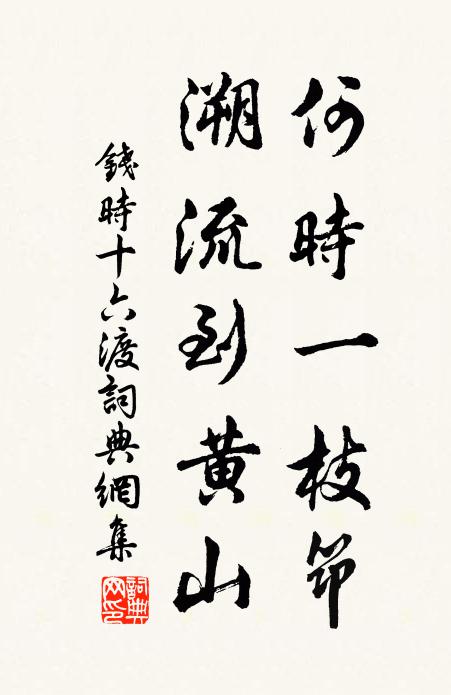 何時一枝笻
溯流到黄山
錢時十六渡詞典網集
詞典网印